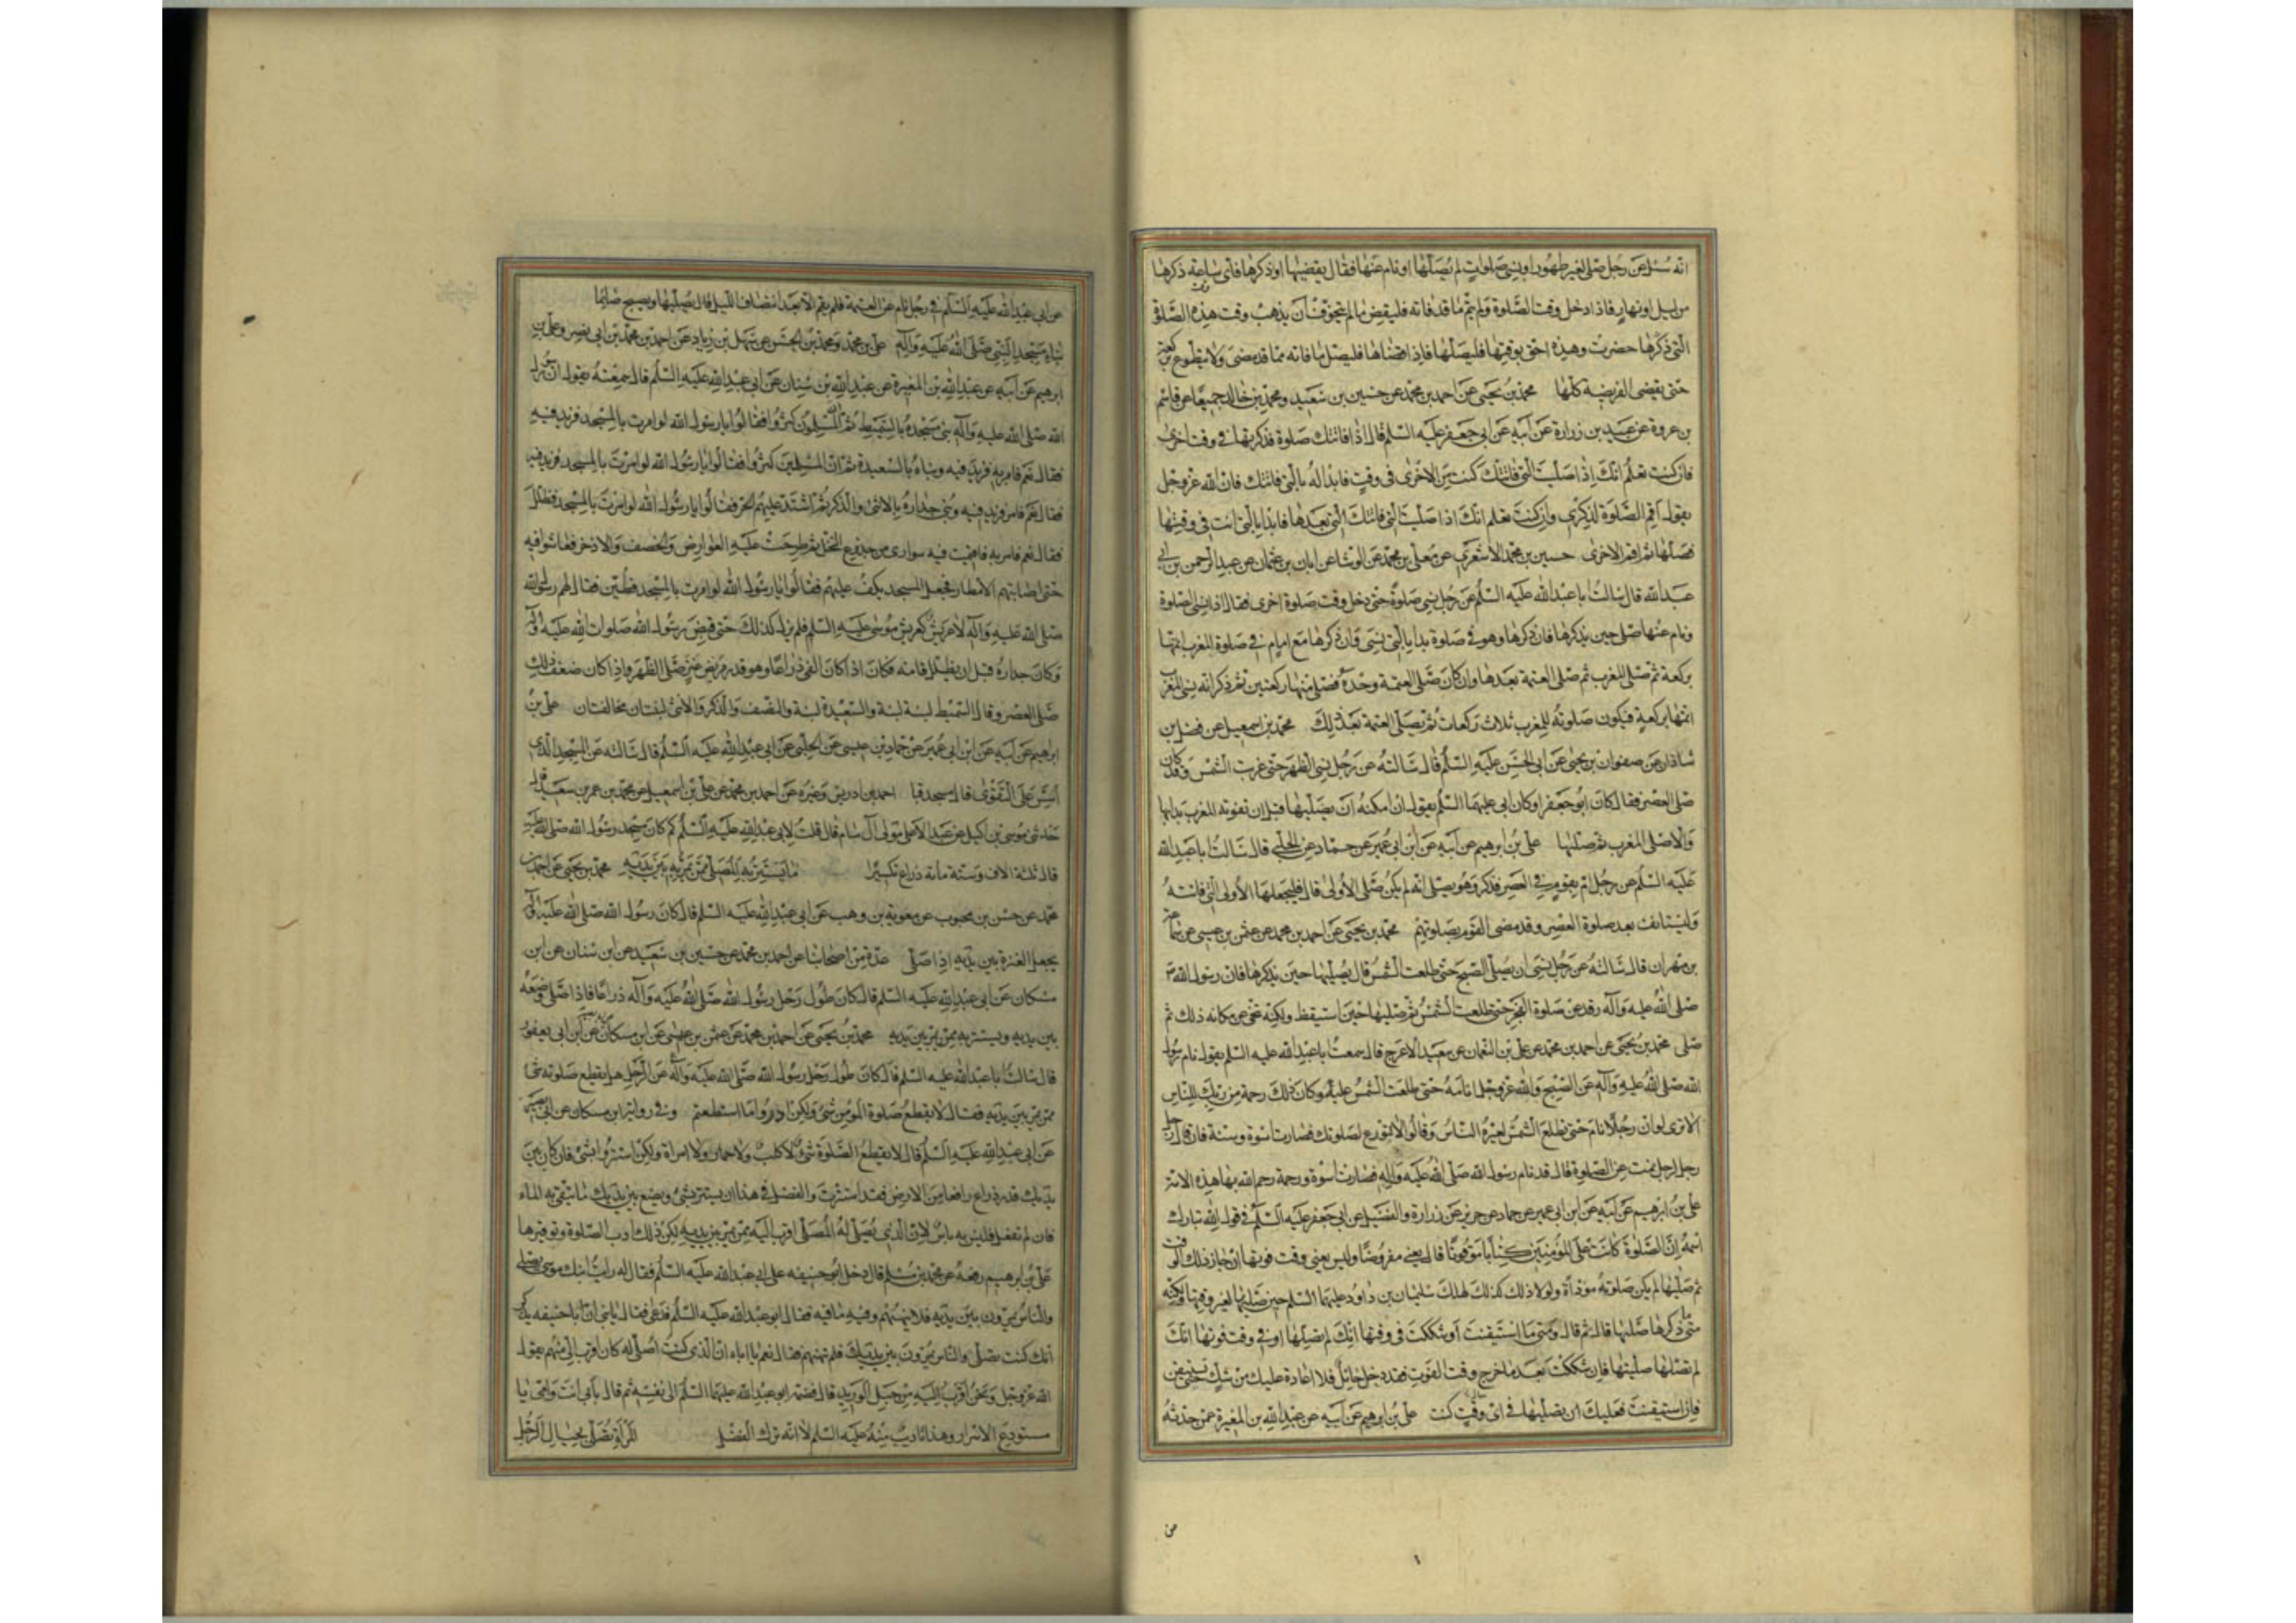 انه سئل عن رجل صلى بغير طهور او نسى صلوات لم يصلها او نام عنها فقال يقضيها اذا ذكرها فى اى ساعة ذكرها
من ليل او نهار فاذا دخل وقت الصلوة ولم يتم ما قد فاته فليقض ما لم يتخوف ان يذهب وقت هذه الصلوة
التى ذكرها حضرت وهذه احق بوقتها فليصلها فاذا قضاها فليصل ما فاته مما قد مضى ولا يتطوع بركعة
حتى يقضى الفريضة كلها محمد بن يحيى عن احمد بن محمد عن حسين بن سعيد ومحمد بن خالد جميعا عن قاسم
بن عروة عن عبيد بن زرارة عن ابيه عن ابى جعفر عليه السلم قال اذا فاتتك صلوة فذكرتها فى وقت اخرى
فان كنت تعلم انك اذا صليت التى فاتتك كنت من الاخرى فى وقت فابدا له بالتى فاتتك فان الله عز وجل
يقول اقم الصلوة لذكرى وان كنت تعلم انك اذا صليت التى فاتتك التى بعدها فابدا بالتى انت فى وقتها
فصلها ثم اقم الاخرى حسين بن محمد الاشعرى عن معلى بن محمد عن الوشا عن ابان بن عثمان عن عبد الرحمن بن ابى
عبد الله قال سالت ابا عبد الله عليه السلم عن رجل نسى صلوة حتى دخل وقت صلوة اخرى فقال اذا نسى الصلوة
ونام عنها صلى حين يذكرها فان ذكرها وهو فى صلوة بدا بالتى نسى وان ذكرها مع امام فى صلوة المغرب اتمها
بركعة ثم صلى المغرب ثم صلى العتمة بعدها وان كان صلى العتمة وحده فصلى منها ركعتين ثم ذكر انه نسى المغرب
اتمها بركعة فيكون صلوته للمغرب ثلاث ركعات ثم يصلى العتمة بعد ذلك محمد بن اسمعيل عن فضل بن
شاذان عن صفوان بن يحيى عن ابى الحسن عليه السلم قال سالته عن رجل نسى الظهر حتى غربت الشمس وقد كان
صلى العصر فقال كان ابو جعفر او كان ابى عليهما السلم يقول ان امكنه ان يصليها قبل ان تفوته المغرب بدا بها
والا صلى المغرب ثم صليها على بن ابرهيم عن ابيه عن ابن ابى عمير عن حماد عن الحلبى قال سالت ابا عبد الله
عليه السلم عن رجل ام بقوم فى العصر فذكر وهو يصلى انه لم يكن صلى الاولى قال فليجعلها الاولى التى فاتته
وليستانف بعد صلوة العصر وقد مضى القوم بصلوتهم محمد بن يحيى عن احمد بن محمد عن عثمن بن عيسى عن سماعة
بن مهران قال سالته عن رجل نسى ان يصلى الصبح حتى طلعت الشمس قال يصليها حين يذكرها فان رسول الله
صلى الله عليه وآله رقد عن صلوة الفجر حتى طلعت الشمس ثم صليها حين استيقظ ولكنه تنحى عن مكانه ذلك ثم
صلى محمد بن يحيى عن احمد بن محمد عن على بن النعمان عن سعيد الاعرج قال سمعت ابا عبد الله عليه السلم يقول نام رسول
الله صلى الله عليه وآله عن الصبح والله عز وجل انامه حتى طلعت الشمس عليه وكان ذلك رحمة من ربك للناس
الا ترى لو ان رجلا نام حتى تطلع الشمس لعيره الناس وقالوا لا تتورع لصلوتك فصارت اسوة وسنة فان قال رجل
رجل لرجل نمت عن الصلوة قال قد نام رسول الله صلى الله عليه وآله فصارت اسوة ورحمة رحم الله بها هذه الامة
على بن ابرهيم عن ابيه عن ابن ابى عمير عن حماد عن حريز عن زرارة والفضيل عن ابى جعفر عليه السلم فى قول الله تبارك
اسمه ان الصلوة كانت على المؤمنين كتابا موقوتا قال يعنى مفروضا وليس يعنى وقت فوتها ان جاز ذلك الوقت
ثم صليها لم يكن صلوته مؤداة ولو لا ذلك كذلك لهلك سليمان بن داود عليهما السلم حين صليها لغير وقتها ولكنه
متى ذكرها صليها قال ثم قال ومتى ما استيقنت او شككت فى وقتها انك لم تصلها او فى وقت فوتها انك
لم تصلها صليتها فان شككت بعد ما خرج وقت الفوت فقد دخل حائل فلا اعادة عليك من شك حتى تستيقن
فان استيقنت فعليك ان تصليها فى اى وقت كنت على بن ابرهيم عن ابيه عن عبد الله بن المغيرة عمن حدثه
عن ابى عبد الله عليه السلم فى رجل نام عن العتمة فلم يقم الا بعد انتصاف الليل قال يصليها ويصبح صائما
بناء مسجد النبى صلى الله عليه وآله على بن محمد ومحمد بن الحسن عن سهل بن زياد عن احمد بن محمد بن ابى نصر وعلى بن
ابرهيم عن ابيه عن عبد الله بن المغيرة عن عبد الله بن سنان عن ابى عبد الله عليه السلم قال سمعته يقول ان رسول
الله صلى الله عليه وآله بنى مسجده بالسميط ثم ان المسلمون كثروا فقالوا يا رسول الله لو امرت بالمسجد فزيد فيه
فقال نعم فامر به فزيد فيه وبناه بالسعيدة ثم ان المسلمين كثروا فقالوا يا رسول الله لو امرت بالمسجد فزيد فيه
فقال نعم فامر فزيد فيه وبنى جداره بالانثى والذكر ثم اشتد عليهم الحر فقالوا يا رسول الله لو امرت بالمسجد فظلل
فقال نعم فامر به فاقيمت فيه سوارى من جذوع النخل ثم طرحت عليه العوارض والخصف والاذخر فعاشوا فيه
حتى اصابتهم الامطار فجعل المسجد يكف عليهم فقالوا يا رسول الله لو امرت بالمسجد فطين فقال لهم رسول الله
صلى الله عليه وآله لا عريش كعريش موسى عليه السلم فلم يزل كذلك حتى قبض رسول الله صلوات الله عليه وآله
وكان جداره قبل ان يظلل قامة فكان اذا كان الفى ذراعا وهو قدر مربض عنز صلى الظهر واذا كان ضعف ذلك
صلى العصر وقال السميط لبنة لبنة والسعيدة لبنة والنصف والذكر والانثى لبنتان مخالفتان على بن
ابرهيم عن ابيه عن ابن ابى عمير عن حماد بن عيسى عن الحلبى عن ابى عبد الله عليه السلم قال سالته عن المسجد الذى
اسس على التقوى قال مسجد قبا احمد بن ادريس وغيره عن احمد بن محمد عن على بن اسمعيل عن محمد بن عمر بن سعيد قال
حدثنى موسى بن اكيل عن عبد الاعلى مولى آل سام قال قلت لابى عبد الله عليه السلم كم كان مسجد رسول الله صلى الله عليه
قال ثلثة الاف وستة مائة ذراع تكسيرا ما يستتر به المصلى ممن يمر به بين يديه محمد بن يحيى عن احمد بن
محمد عن حسن بن محبوب عن معوية بن وهب عن ابى عبد الله عليه السلم قال كان رسول الله صلى الله عليه وآله
يجعل العنزة بين يديه اذا صلى عدة من اصحابنا عن احمد بن محمد عن حسين بن سعيد عن ابن سنان عن ابن
مسكان عن ابى عبد الله عليه السلم قال كان طول رحل رسول الله صلى الله عليه وآله ذراعا فاذا صلى وضعه
بين يديه ويستتر به ممن يمر بين يديه محمد بن يحيى عن احمد بن محمد عن عثمن بن عيسى عن ابن مسكان عن ابن ابى يعفور
قال سالت ابا عبد الله عليه السلم قال كان طول رحل رسول الله صلى الله عليه وآله عن الرجل هل يقطع صلوته شئ
ممن يمر بين يديه فقال لا يقطع صلوة المؤمن شئ ولكن ادرؤا ما استطعتم وفى رواية ابن مسكان عن ابى بصير
عن ابى عبد الله عليه السلم قال لا يقطع الصلوة شئ لا كلب ولا حمار ولا امراة ولكن استتروا بشئ فان كان بين
يديك قدر ذراع رافعا من الارض فقد استترت والفضل فى هذا ان يستتر بشئ ويضع بين يديك ما يتقى به الماء
فان لم تفعل فليس به باس لان الذى يصلى له المصلى اقرب اليه ممن يمر بين يديه لكن ذلك ادب الصلوة وتوقيرها
على بن ابرهيم رفعه عن محمد بن مسلم قال دخل ابو حنيفه على ابى عبد الله عليه السلم فقال له رايت ابنك موسى يصلى
والناس يمرون بين يديه فلا ينهيهم وفيه ما فيه فقال ابو عبد الله عليه السلم فدعى فقال يا بنى ان ابا حنيفه يذكر
انك كنت تصلى والناس يمرون بين يديك فلم تنههم فقال نعم يا اباه ان الذى كنت اصلى له كان اقرب الى منهم يقول
الله عز وجل ونحن اقرب اليه من حبل الوريد قال فضمه ابو عبد الله عليهما السلم الى نفسه ثم قال بابى انت وامى يا
مستودع الاسرار وهذا تاديب منه عليه السلم لا انه ترك الفضل المراة تصلى بحيال الرجل